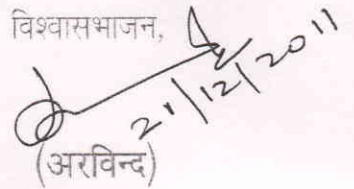 विश्वासभाजन,
21/12/2011
(अरविन्द)